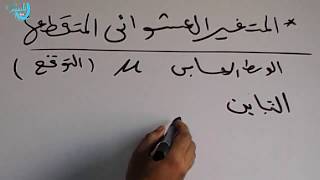 * المتغير العشوائي المتقطع
الوسط الحسابي μ (التوقع)
التباين